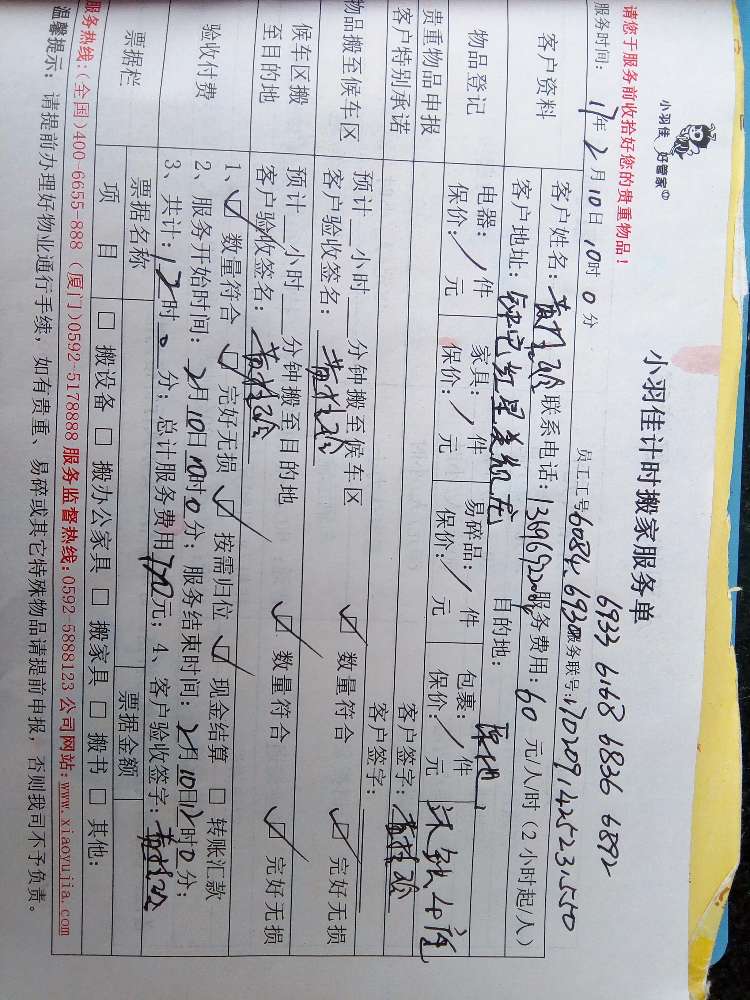 小羽佳 好管家
小羽佳计时搬家服务单
6933 6168 6836 6892
请您于服务前收拾好您的贵重物品！
服务时间： 17年 2月10日 10时0分
员工工号 6084 6930 服务联号：
客户资料
客户姓名： 联系电话： 服务费用：60 元/人/时（2小时起/人）
客户地址： 目的地：
物品登记
电器：/件 家具：/件 易碎品：/件 包裹：/件
保价：/元 保价：/元 保价：/元 保价：/元
贵重物品申报 客户签字：
客户特别承诺 客户签字：
物品搬至候车区
预计__小时__分钟搬至候车区 数量符合 完好无损
客户验收签名：
候车区搬至目的地
预计__小时__分钟搬至目的地 数量符合 完好无损
客户验收签名：
验收付费
1、 数量符合 完好无损 按需归位 现金结算 转账汇款
2、服务开始时间：2月10日10时0分；服务结束时间：2月10日12时0分；
3、共计：12时0分；总计服务费用720元；4、客户验收签字：
票据栏
票据名称 票据金额
项目 □ 搬设备 □ 搬办公家具 □ 搬家具 □ 搬书 □ 其他：
服务热线：（全国）400-6655-888（厦门）0592-5178888 服务监督热线：0592-5888123 公司网站：www.xiaoyujia.com
温馨提示：请提前办理好物业通行手续，如有贵重、易碎或其它特殊物品请提前申报，否则我司不予负责。